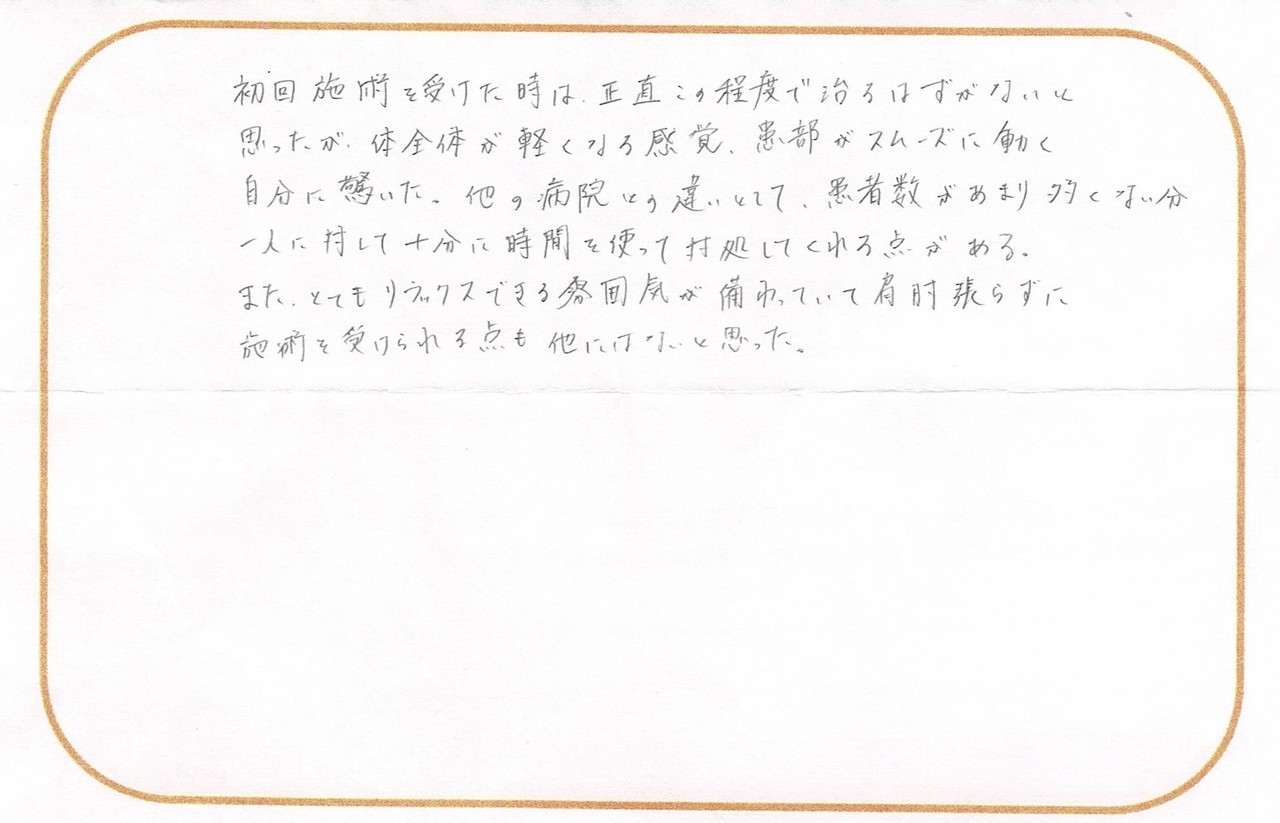 初回施術を受けた時は、正直この程度で治るはずがないと
思ったが、体全体が軽くなる感覚、患部がスムーズに動く
自分に驚いた。他の病院との違いとして、患者数があまり多くない分
一人に対して十分に時間を使って対処してくれる点がある。
また、とてもリラックスできる雰囲気が備わっていて肩肘張らずに
施術を受けられる点も他にはないと思った。